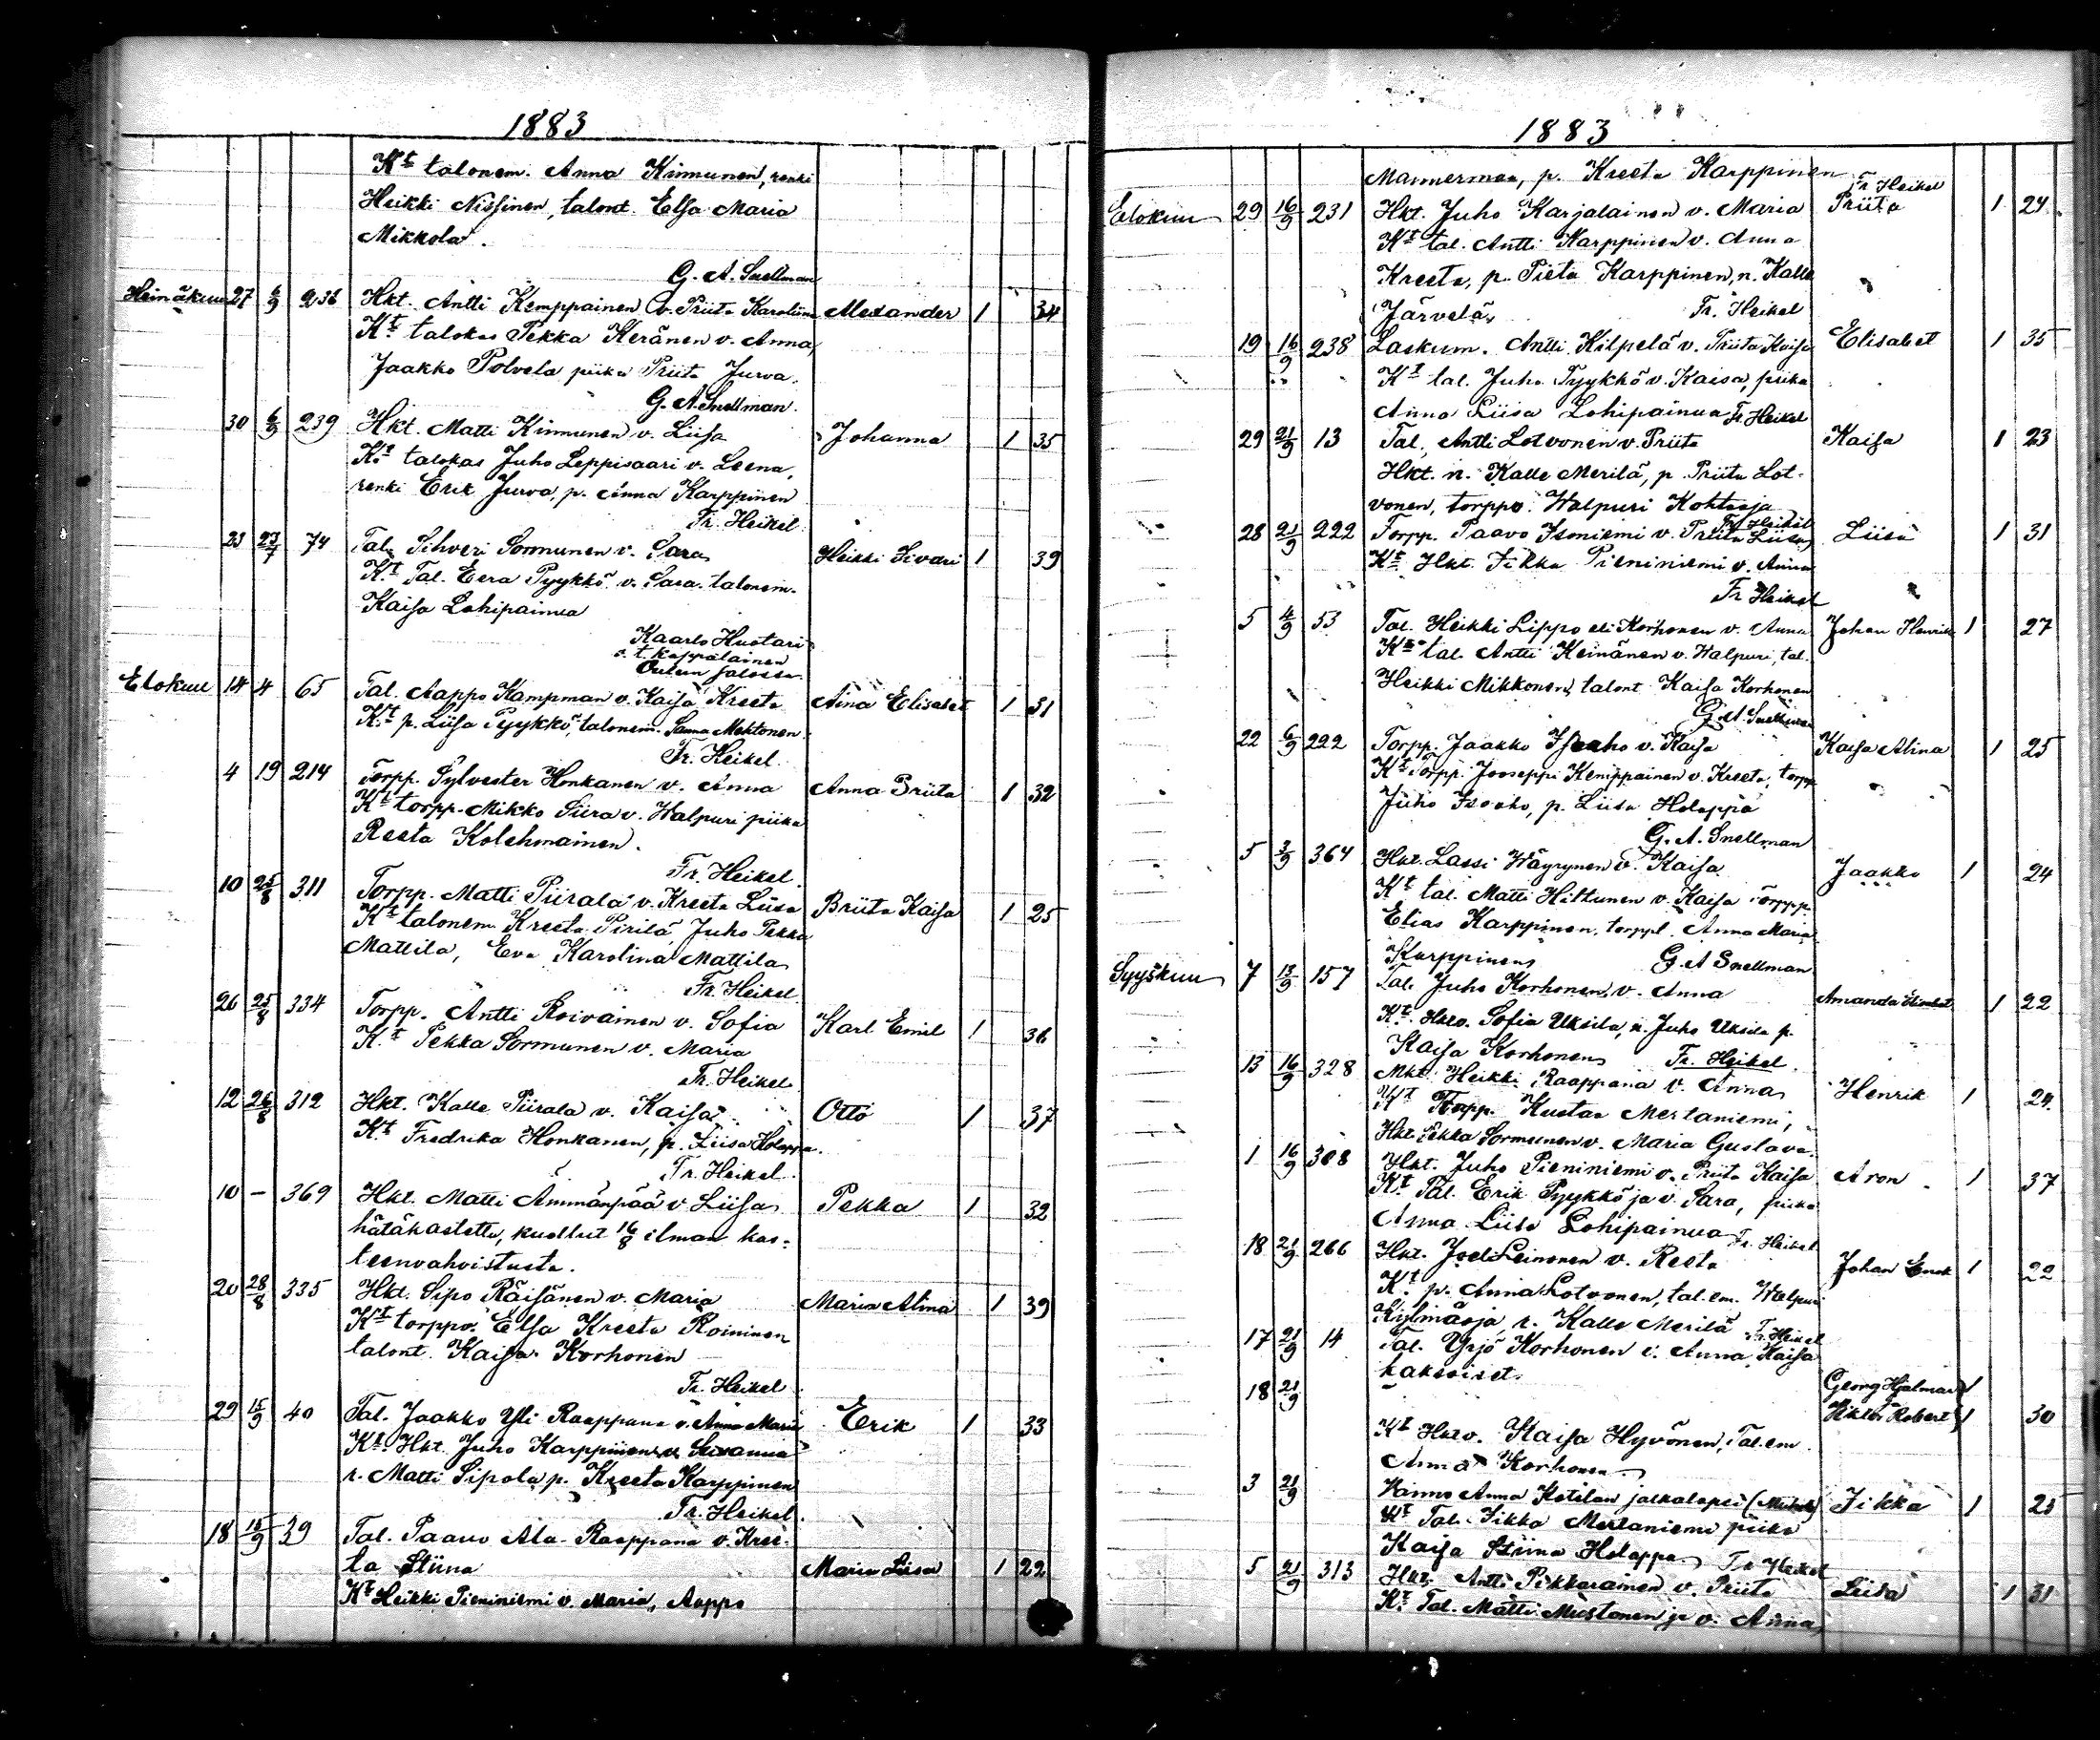 1883
Kt talonem. Anna Kinnunen, renki
Heikki Nissinen, talont. Elsa Maria
Mikkola.
G. A. Snellman
Heinäkuu 27 6/9 236 Hkt. Antti Kemppainen v. Priita Karoliina Alexander 1 34
Kt talokas Pekka Keränen v. Anna,
Jaakko Polvela piika Priita Jurva.
G. A. Snellman.
30 6/9 239 Hkt. Matti Kinnunen v. Liisa Johanna 1 35
Kt talokas Juho Leppisaari v. Leena,
renki Erik Jurva, p. Anna Karppinen
Fr. Heikel
23 23/7 74 Tal. Sihveri Sormunen v. Sara Heikki Iivari 1 39
Kt Tal. Eera Pyykkö v. Sara. talonem.
Kaisa Lohipainua
Kaarlo Huotari
v. t. kappalainen
Oulun jalossa
Elokuu 14 4 65 Tal. Aappo Kampman v. Kaisa Kreeta Aina Elisabet 1 31
Kt p. Liisa Pyykkö, talonem. Sanna Mehtonen.
Fr. Heikel.
4 19 214 Torpp. Sylvester Honkanen v. Anna Anna Priita 1 32
Kt torpp. Mikko Siira v. Walpuri piika
Reeta Kolehmainen.
Fr. Heikel.
10 25/8 311 Torpp. Matti Piirala v. Kreeta Liisa Briita Kaisa 1 25
Kt talonem Kreeta Pirilä, Juho Pekka
Mattila, Eva Karolina Mattila
Fr. Heikel
26 25/8 334 Torpp. Antti Roivainen v. Sofia Karl Emil 1 36
Kt Pekka Sormunen v. Maria
Fr. Heikel.
12 26/8 312 Hkt. Kalle Piirala v. Kaisa Otto 1 37
Kt Fredrika Honkanen, p. Liisa Holappa.
Fr. Heikel.
10 – 369 Hkt. Matti Ämmänpää v Liisa Pekka 1 32
hätäkastettu, kuollut 16/8 ilman kas-
teenvahvistusta.
20 28/8 335 Hkt. Sipo Räisänen v. Maria Maria Alina 1 39
Kt torppv. Elsa Kreeta Roininen
talont. Kaisa Korhonen
Fr. Heikel
29 15/9 40 Tal. Jaakko Yli Raappana v. Anna Maria Erik 1 33
Kt. Hkt. Juho Karppinen v. Susanna
r. Matti Sipola, p. Kreeta Karppinen
Fr. Heikel.
18 15/9 39 Tal. Paavo Ala-Raappana v. Kree-
ta Stiina Maria Liisa 1 22
Kt Heikki Pieniniemi v. Maria, Aappo
1883
Mannermaa, p. Kreeta Karppinen
Fr. Heikel
Elokuu 29 16/9 231 Hkt. Juho Karjalainen v. Maria Priita 1 24
Kt tal. Antti Karppinen v. Anna
Kreeta, p. Pieta Karppinen, n. Kalle
Järvelä, Fr. Heikel
19 16/9 238 Laskum. Antti Kilpelä v. Priita Kaisa Elisabet 1 35
Kt tal. Juho Pyykkö v. Kaisa, piika
Anna Liisa Lohipainua Fr. Heikel
29 21/9 13 Tal. Antti Lotvonen v. Priita Kaisa 1 23
Hkt. n. Kalle Merilä, p. Priita Lot-
vonen, torppv. Walpuri Kohtaoja
Fr. Heikel
28 21/9 222 Torpp. Paavo Isoniemi v. Priita Liisa, Liisa 1 31
Kt Hkt. Iikka Pieniniemi v. Anna
Fr. Heikel
5 4/9 53 Tal. Heikki Lippo eli Korhonen v. Anna Johan Henrik 1 27
Kt tal. Antti Keinänen v. Walpuri, tal.
Heikki Mikkonen, talont Kaisa Korhonen
G. A. Snellman
22 6/9 222 Torpp. Jaakko Isoaho v. Kaisa Kaisa Alina 1 25
Kt Torpp. Jooseppi Kemppainen v. Kreeta, torpp
Juho Isoaho, p. Liisa Holappa
G. A. Snellman
5 3/9 364 Hkt. Lassi Wäyrynen v. Kaisa Jaakko 1 24
Kt tal. Matti Hiltunen v. Kaisa torpp.
Elias Karppinen, torppl. Anna Maria
Karppinen, G. A Snellman
Syyskuu 7 13/9 157 Tal. Juho Korhonen, v. Anna Amanda Elisabet 1 22
Kt. Hktv. Sofia Uksila, n. Juho Uksila p.
Kaisa Korhonen Fr. Heikel.
13 16/9 328 Mkt. Heikki Raappana v. Anna Henrik 1 24.
Kt Torpp. Kustaa Mertaniemi,
Hkt. Pekka Sormunen v. Maria Gustava.
1 16/9 308 Hkt. Juho Pieniniemi v. Priita Kaisa Aron 1 37
Kt Tal. Erik Pyykkö ja v. Sara, piika
Anna Liisa Lohipainua Fr. Heikel
18 21/9 266 Hkt. Joel Leinonen v. Reeta Johan Enok 1 22
Kt. p. Anna Lotvonen, tal. em. Walpuri
Kylmäoja r. Kalle Merilä Fr. Heikel
17 21/9 14 Tal. Yrjö Korhonen v. Anna Kaisa
kaksoiset. Georg Hjalmar 1
18 21/9 Viktor Robert 1 30
Kt Hktv. Kaisa Hyvönen, Tal. em.
Anna Korhonen
3 21/9 Hanno Anna Ketilan jalkalapsi Iikka 1 25
Kt Tal. Iikka Mertaniemi piika
Kaisa Stiina Holappa Fr Heikel
5 21/9 313 Hkt. Antti Pikkarainen v. Priita Liisa 1 31
Kt. Tal. Matti Mustonen ja v. Anna,